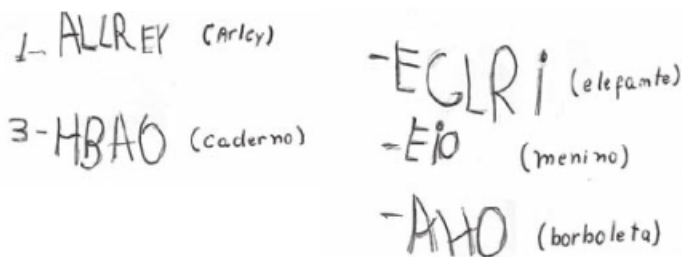 1- ALLREY (Arley)
3-HBAO (caderno)
-EGLRi (elefante)
-Eio (menino)
-AHO (borboleta)